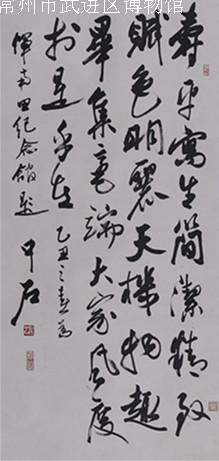 常州市武进区博物馆
寿平写生简洁精致
赋色明丽天机物趣
毕集毫端大家风度
于是乎在
乙丑之春为
恽南田纪念馆题